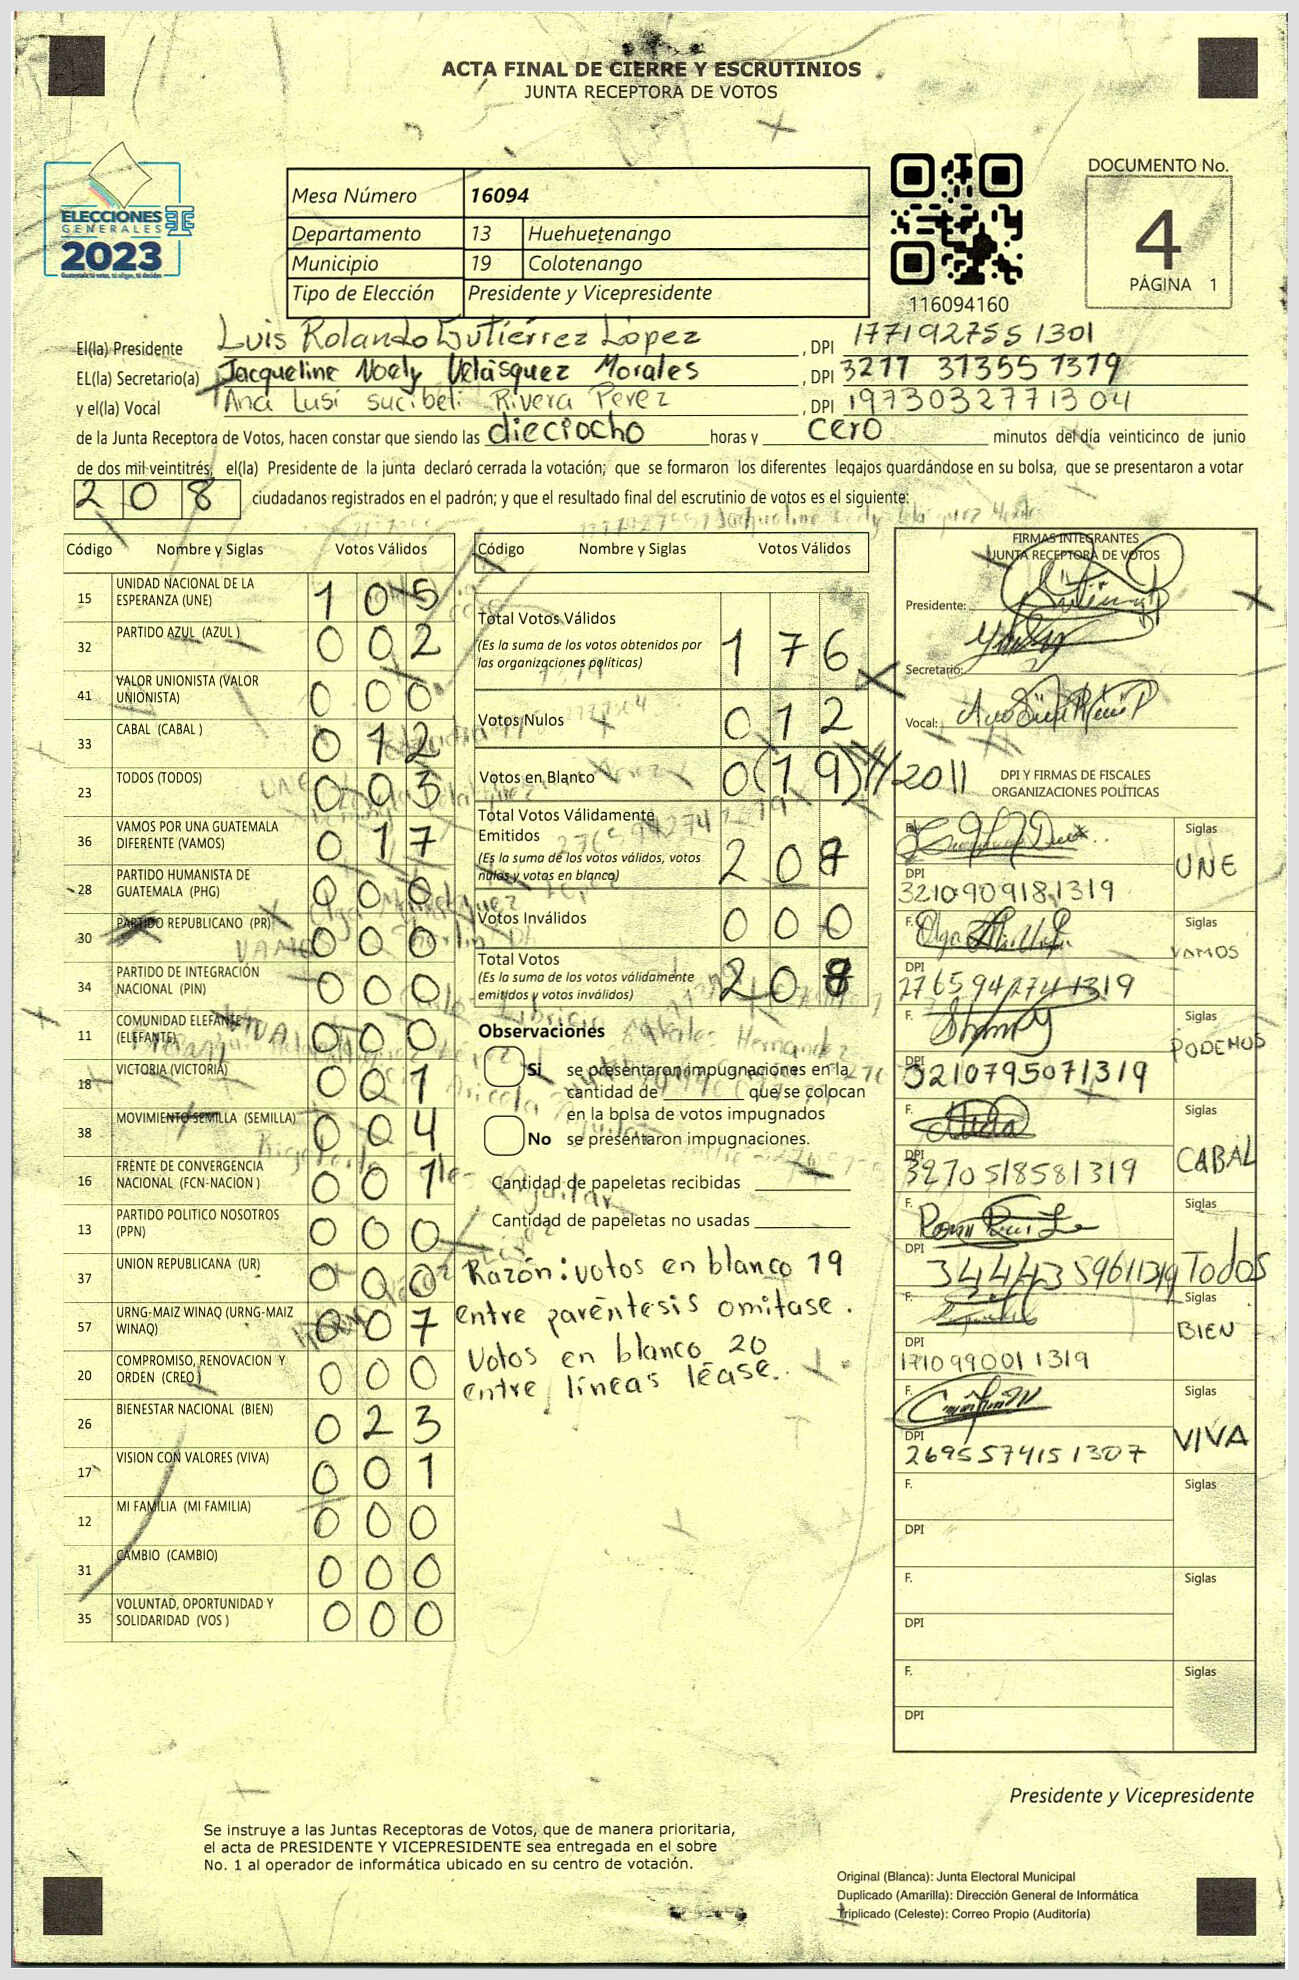 ACTA FINAL DE CIERRE Y ESCRUTINIOS
JUNTA RECEPTORA DE VOTOS
ELECCIONES
GENERALES
2023
Mesa Número 16094
Departamento 13 Huehuetenango
Municipio 19 Colotenango
Tipo de Elección Presidente y Vicepresidente
116094160
DOCUMENTO No.
4
PÁGINA 1
El(la) Presidente Luis Rolando Gutiérrez López, DPI 1771927551301
EL(la) Secretario(a) Jacqueline Noely Velásquez Morales, DPI 3211 31355 1319
y el(la) Vocal Ana Lusi sucibeli Rivera Perez, DPI 1973032771304
de la Junta Receptora de Votos, hacen constar que siendo las dieciocho horas y cero minutos del día veinticinco de junio
de dos mil veintitrés, el(la) Presidente de la junta declaró cerrada la votación; que se formaron los diferentes legajos guardándose en su bolsa, que se presentaron a votar
208 ciudadanos registrados en el padrón; y que el resultado final del escrutinio de votos es el siguiente:
Código Nombre y Siglas Votos Válidos
15 UNIDAD NACIONAL DE LA ESPERANZA (UNE) 105
32 PARTIDO AZUL (AZUL ) 002
41 VALOR UNIONISTA (VALOR UNIONISTA) 000
33 CABAL (CABAL ) 012
23 TODOS (TODOS) 003
36 VAMOS POR UNA GUATEMALA DIFERENTE (VAMOS) 017
28 PARTIDO HUMANISTA DE GUATEMALA (PHG) 000
30 PARTIDO REPUBLICANO (PR) 000
34 PARTIDO DE INTEGRACIÓN NACIONAL (PIN) 000
11 COMUNIDAD ELEFANTE (ELEFANTE) 000
18 VICTORIA (VICTORIA) 001
38 MOVIMIENTO SEMILLA (SEMILLA) 004
16 FRENTE DE CONVERGENCIA NACIONAL (FCN-NACION ) 001
13 PARTIDO POLITICO NOSOTROS (PPN) 000
37 UNION REPUBLICANA (UR) 000
57 URNG-MAIZ WINAQ (URNG-MAIZ WINAQ) 007
20 COMPROMISO, RENOVACION Y ORDEN (CREO) 000
26 BIENESTAR NACIONAL (BIEN) 023
17 VISION CON VALORES (VIVA) 001
12 MI FAMILIA (MI FAMILIA) 000
31 CAMBIO (CAMBIO) 000
35 VOLUNTAD, OPORTUNIDAD Y SOLIDARIDAD (VOS ) 000
Código Nombre y Siglas Votos Válidos
Total Votos Válidos 176
(Es la suma de los votos obtenidos por
las organizaciones políticas)
Votos Nulos 012
Votos en Blanco 0(19)//20//
Total Votos Válidamente
Emitidos 208
(Es la suma de los votos válidos, votos
nulos y votos en blanco)
Votos Inválidos 000
Total Votos 208
(Es la suma de los votos válidamente
emitidos y votos inválidos)
Observaciones
Si se presentaron impugnaciones en la
cantidad de ________ que se colocan
en la bolsa de votos impugnados
No se presentaron impugnaciones.
Cantidad de papeletas recibidas
Cantidad de papeletas no usadas
Razón: votos en blanco 19
entre paréntesis omitase.
Votos en blanco 20
entre líneas léase.
FIRMAS INTEGRANTES
JUNTA RECEPTORA DE VOTOS
Presidente:
Secretario:
Vocal:
DPI Y FIRMAS DE FISCALES
ORGANIZACIONES POLÍTICAS
F. Siglas UNE
DPI 3210909181319
F. Siglas VAMOS
DPI 2765942741319
F. Siglas PODEMOS
DPI 3210795071319
F. Siglas CABAL
DPI 3270518581319
F. Siglas Todos
DPI 3444359611319
F. Siglas BIEN
DPI 1710990011319
F. Siglas VIVA
DPI 2695574151307
F. Siglas
DPI
F. Siglas
DPI
F. Siglas
DPI
Presidente y Vicepresidente
Se instruye a las Juntas Receptoras de Votos, que de manera prioritaria,
el acta de PRESIDENTE Y VICEPRESIDENTE sea entregada en el sobre
No. 1 al operador de informática ubicado en su centro de votación.
Original (Blanca): Junta Electoral Municipal
Duplicado (Amarilla): Dirección General de Informática
Triplicado (Celeste): Correo Propio (Auditoría)